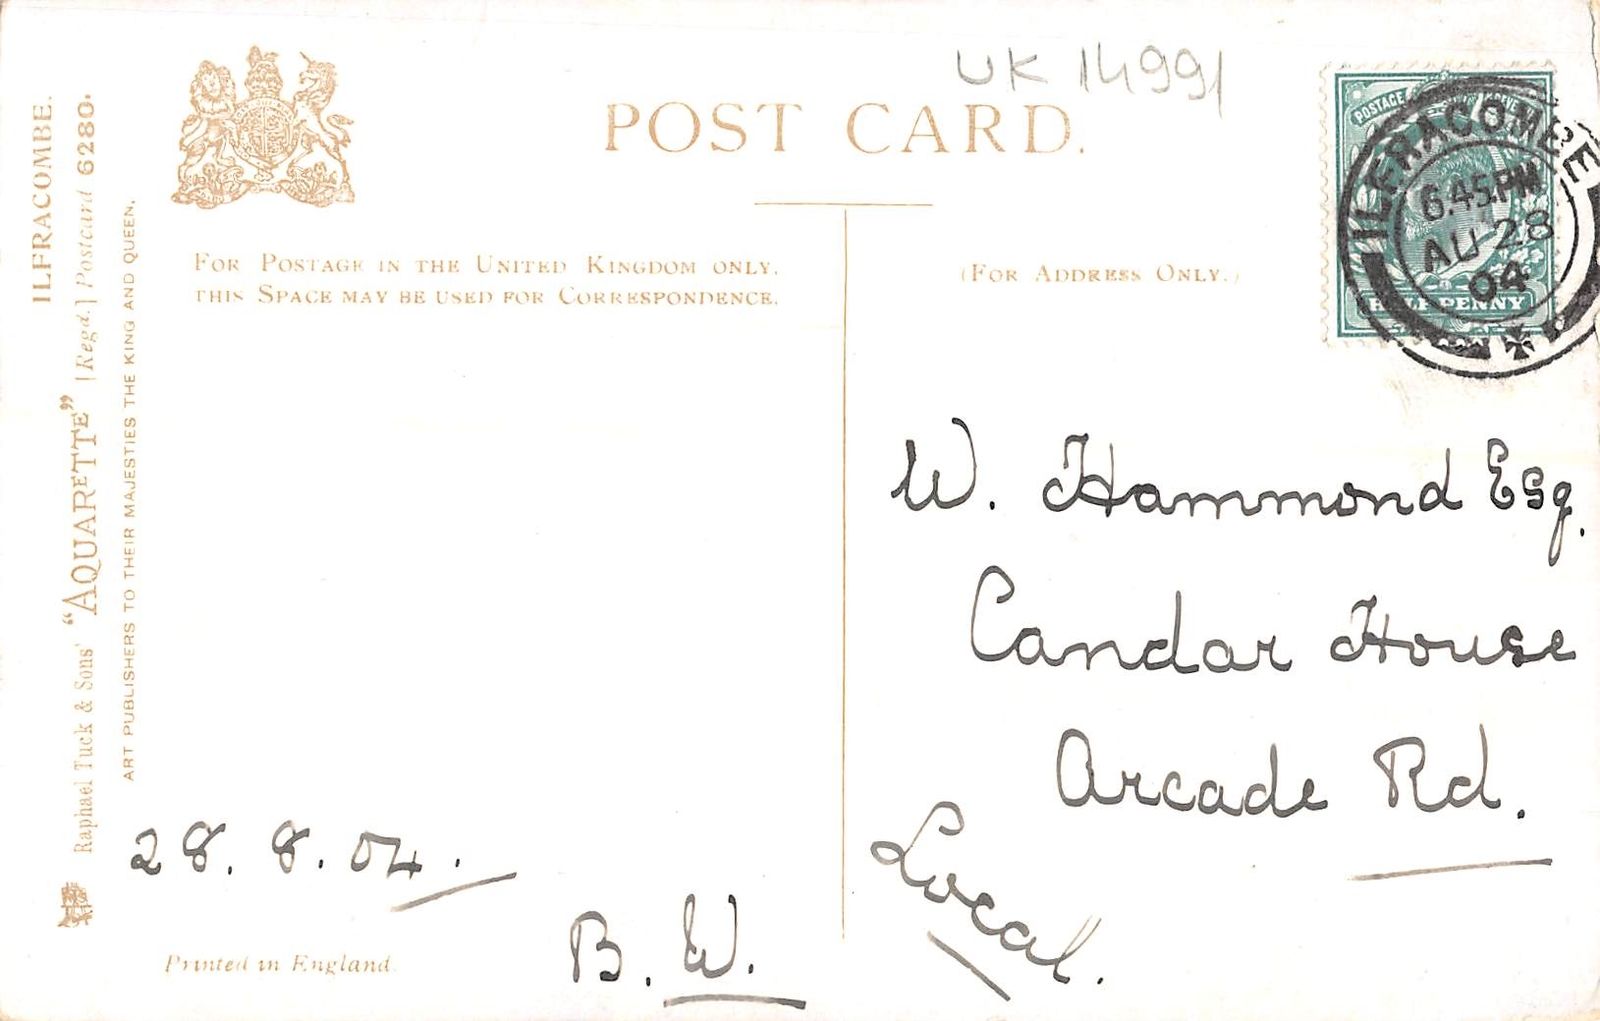 ILFRACOMBE.
Raphael Tuck & Sons' "AQUARETTE" [Regd.] Postcard 6280.
ART PUBLISHERS TO THEIR MAJESTIES THE KING AND QUEEN.
UK 14991
POST CARD.
FOR POSTAGE IN THE UNITED KINGDOM ONLY.
THIS SPACE MAY BE USED FOR CORRESPONDENCE.
(FOR ADDRESS ONLY.)
POSTAGE
HALFPENNY
ILFRACOMBE
6.45.PM
AU 28
04
W. Hammond Esq.
Candar House
Arcade Rd.
Local.
28. 8. 04.
B. W.
Printed in England.